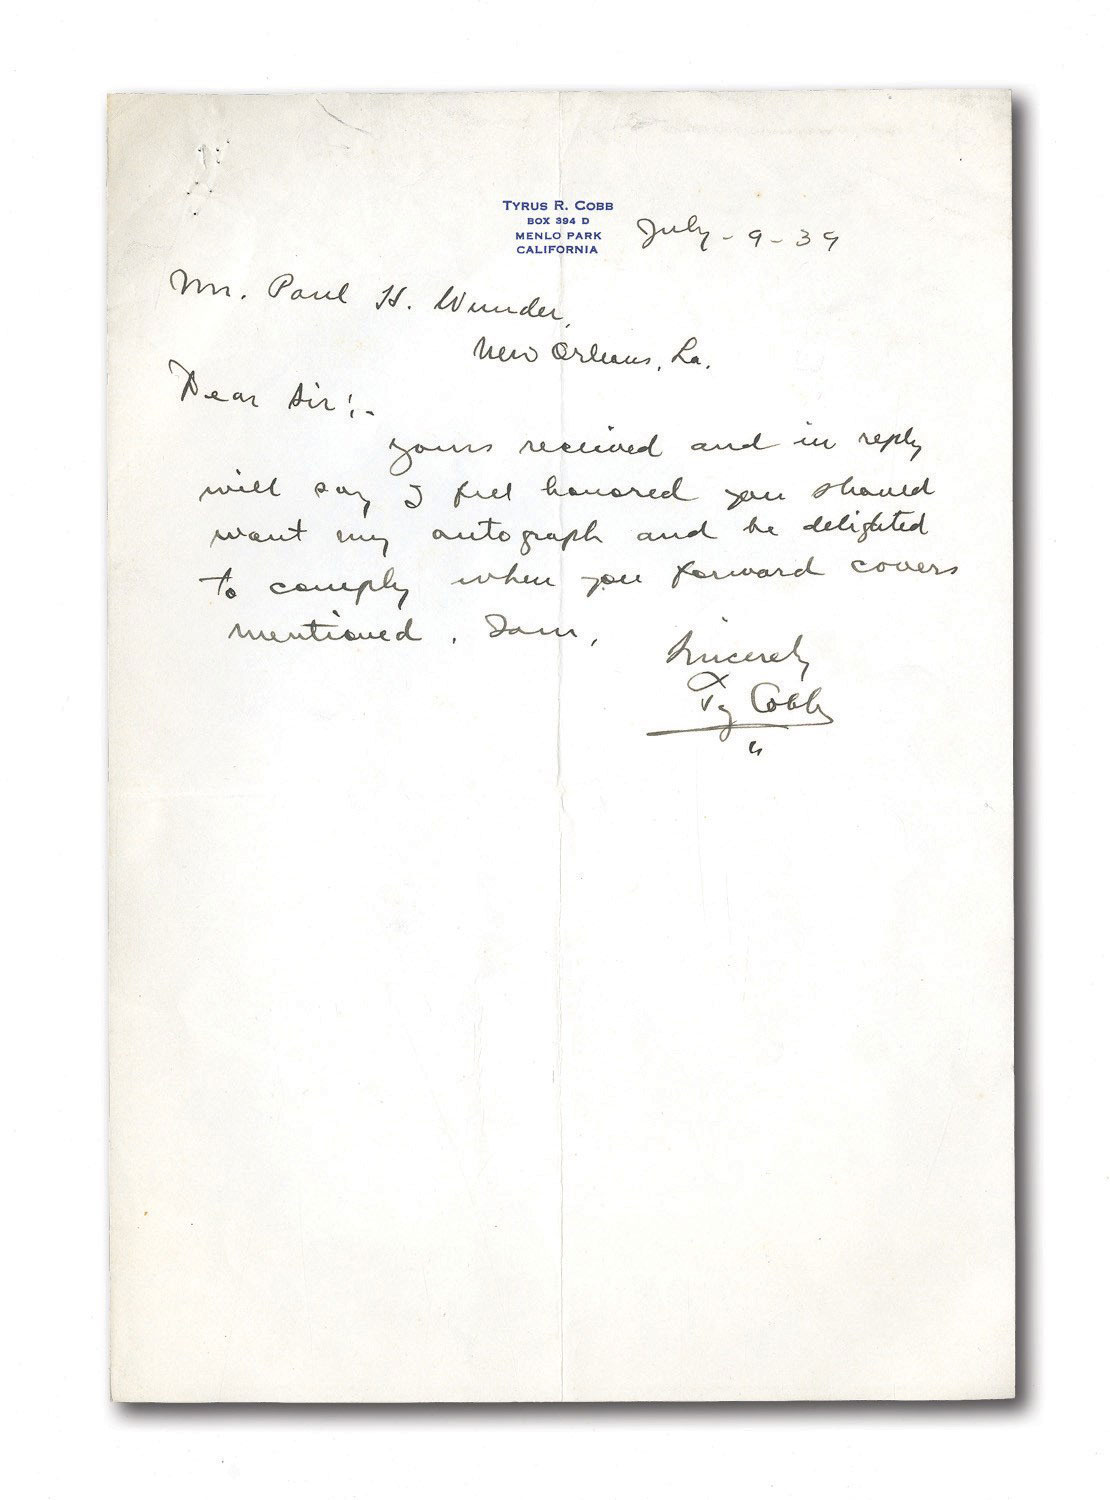 TYRUS R. COBB
BOX 394 D
MENLO PARK
CALIFORNIA
July - 9 - 39
Mr. Paul H. Wunder,
New Orleans, La.
Dear Sir :-
yours received and in reply
will say I feel honored you should
want my autograph and be delighted
to comply when you forward covers
mentioned . I am ,
Sincerely
Ty Cobb